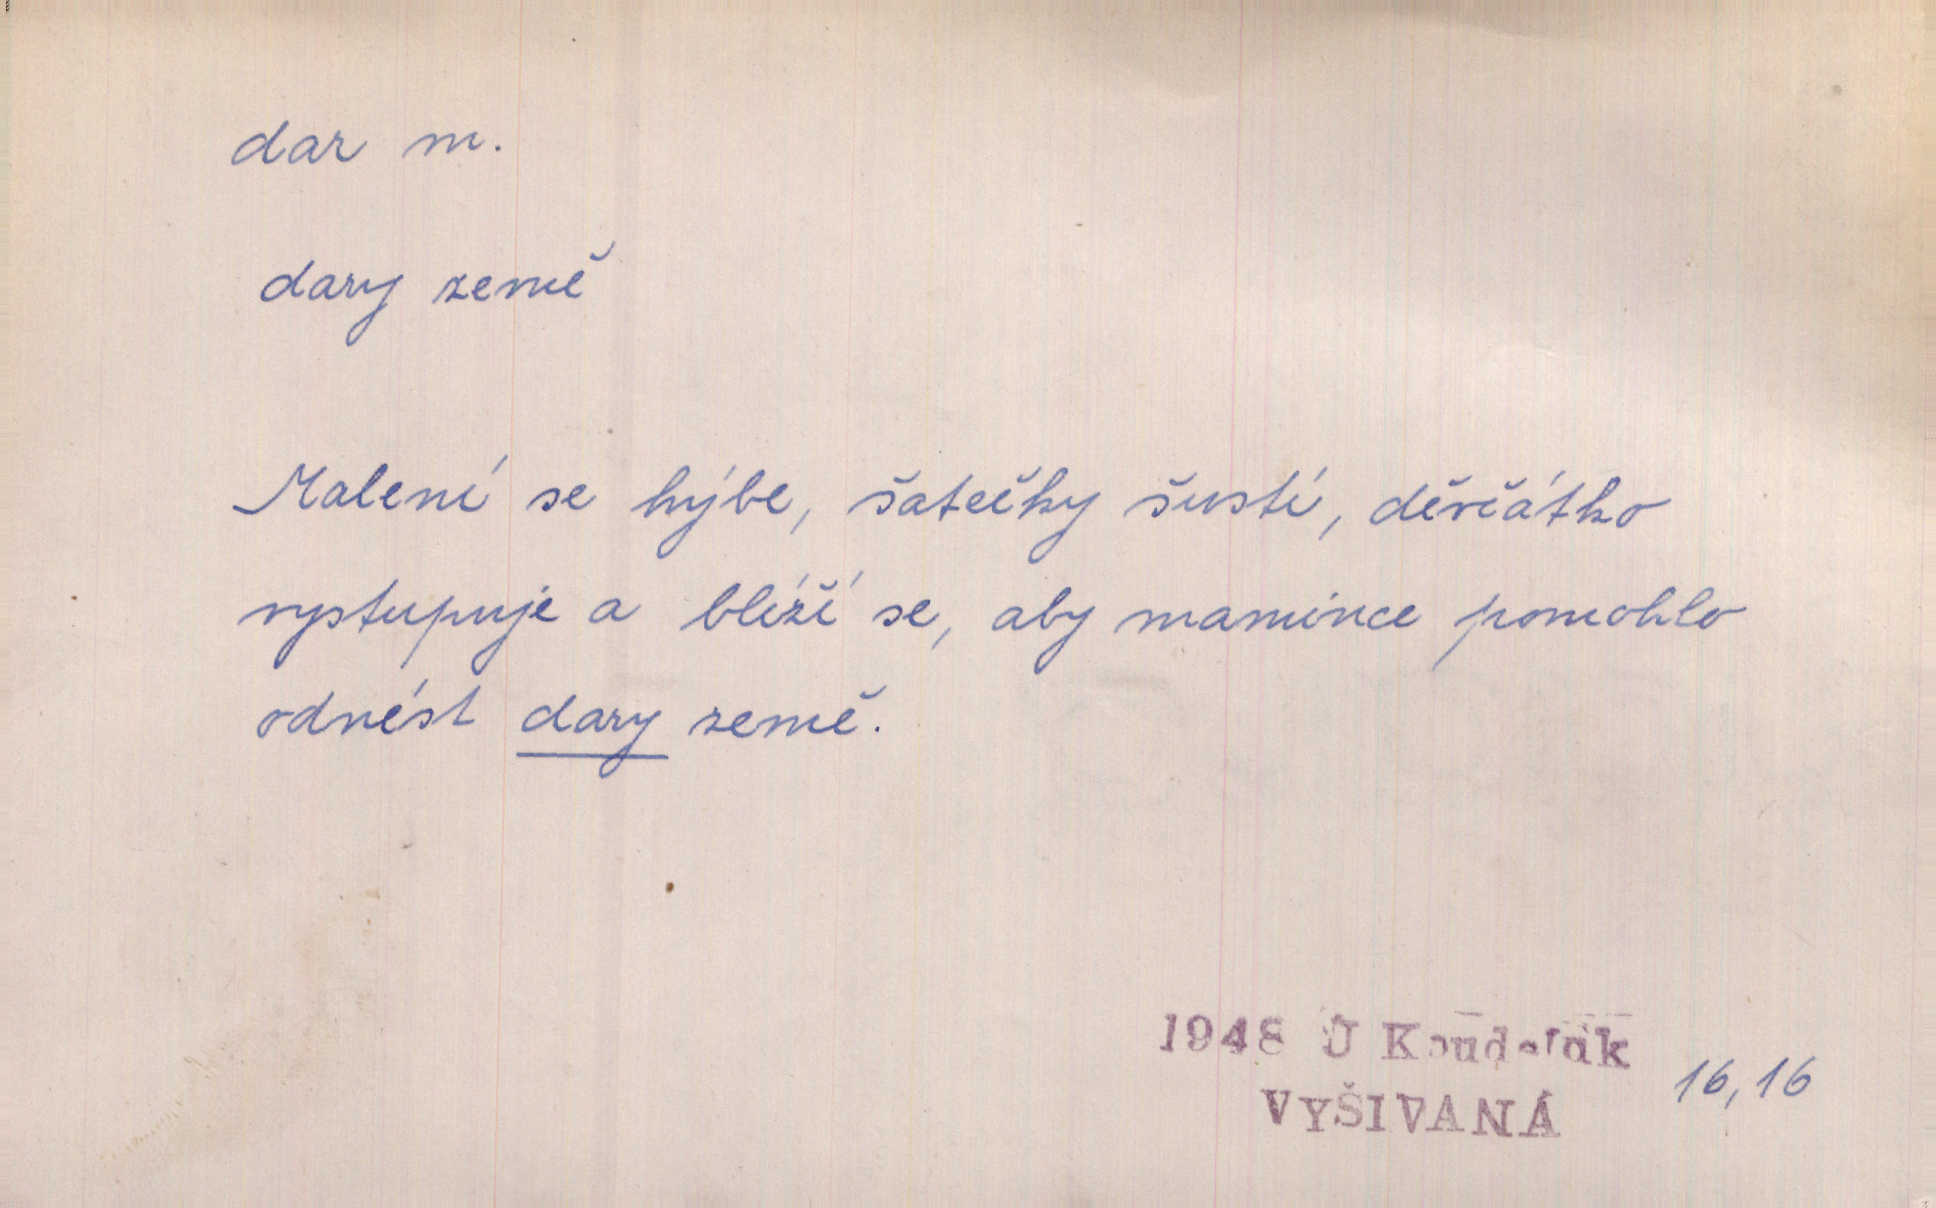 dar m.
dary země
Malení se hýbe, šatečky šustí, děvčátko
vystupuje a blíží se, aby mamince pomohlo
odnést dary země.
1948 J Koudelák
VYŠIVANÁ
16,16